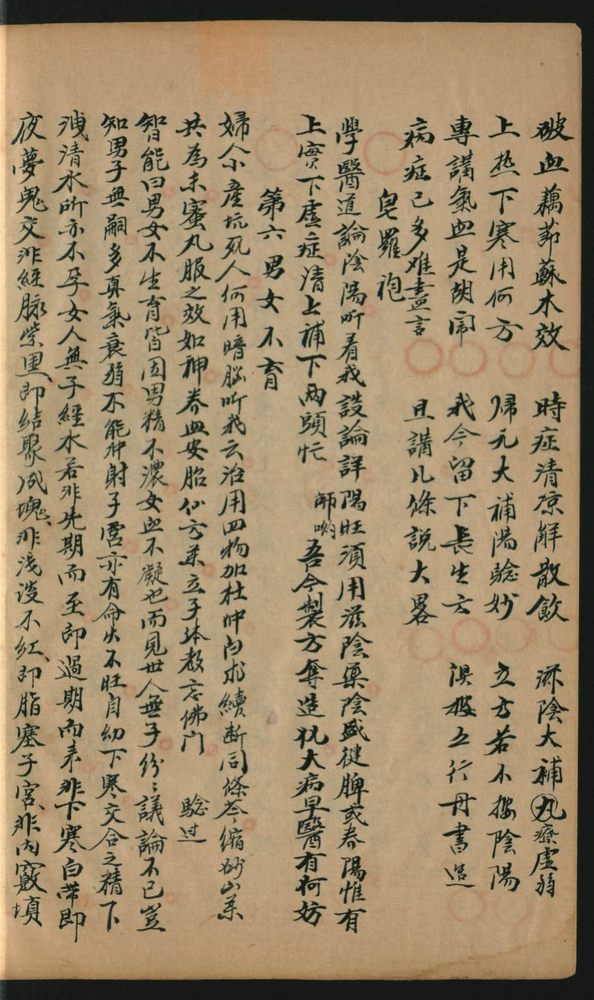 破血藕節蘇木效　時症清凉解散飲　滋陰大補丸療虛弱
上热下寒用何方　歸元大補陽騐妙　立方若不按陰陽
專講氣血是胡鬧　我今留下長生方　俱按五行丹書造
病症已多难盡言　且講几條說大畧
皂羅袍
學醫道論陰陽听着我設論詳陽旺須用滋陰藥陰盛健脾或春陽惟有
上實下虛症清上補下兩頭忙　師吶　吾今製方奪造犯大病早醫有何妨
第六男女不育
婦人小產坑死人何用暗腦听我云治用四物加杜仲白朮續断同條苓縮砂山药
共為末蜜丸服之效如神养血安胎仙方药立于坏教忘佛門　騐过
智能曰男女不生育皆因男精不濃女血不凝也而見世人無子紛紛議論不已豈
知男子無嗣多真氣衰弱不能冲射子宮亦有命火不旺自幼下寒交合之精下
洩清水所亦不孕女人無子經水若非先期而至即過期而来非下寒白带即
夜夢鬼交非經脉紫黑即結聚成塊非浅淡不紅即脂塞子宮非內竅